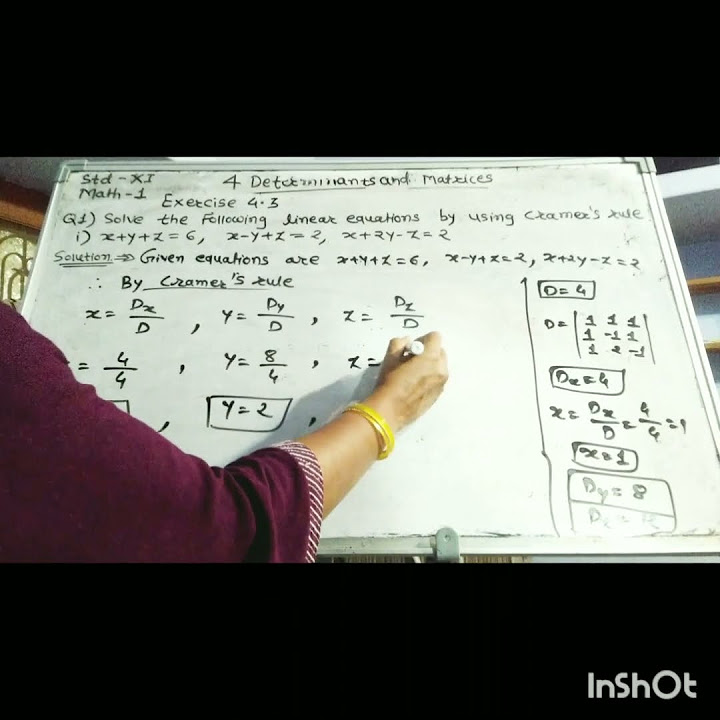 Std - XI
Math - 1
4 Determinants and Matrices
Exercise 4.3
Q1) Solve the Following linear equations by using Cramer's rule
i) x+y+z=6, x-y+z=2, x+2y-z=2
Solution ⇒ Given equations are x+y+z=6, x-y+z=2, x+2y-z=2
∴ By Cramer's rule
x = Dx/D , y = Dy/D , z = Dz/D
= 4/4 , y = 8/4 , z =
, y = 2 ,
D = 4
D = | 1 1 1 |
| 1 -1 1 |
| 1 2 -1 |
Dx = 4
x = Dx/D = 4/4 = 1
x = 1
Dy = 8
Dz =
InShOt